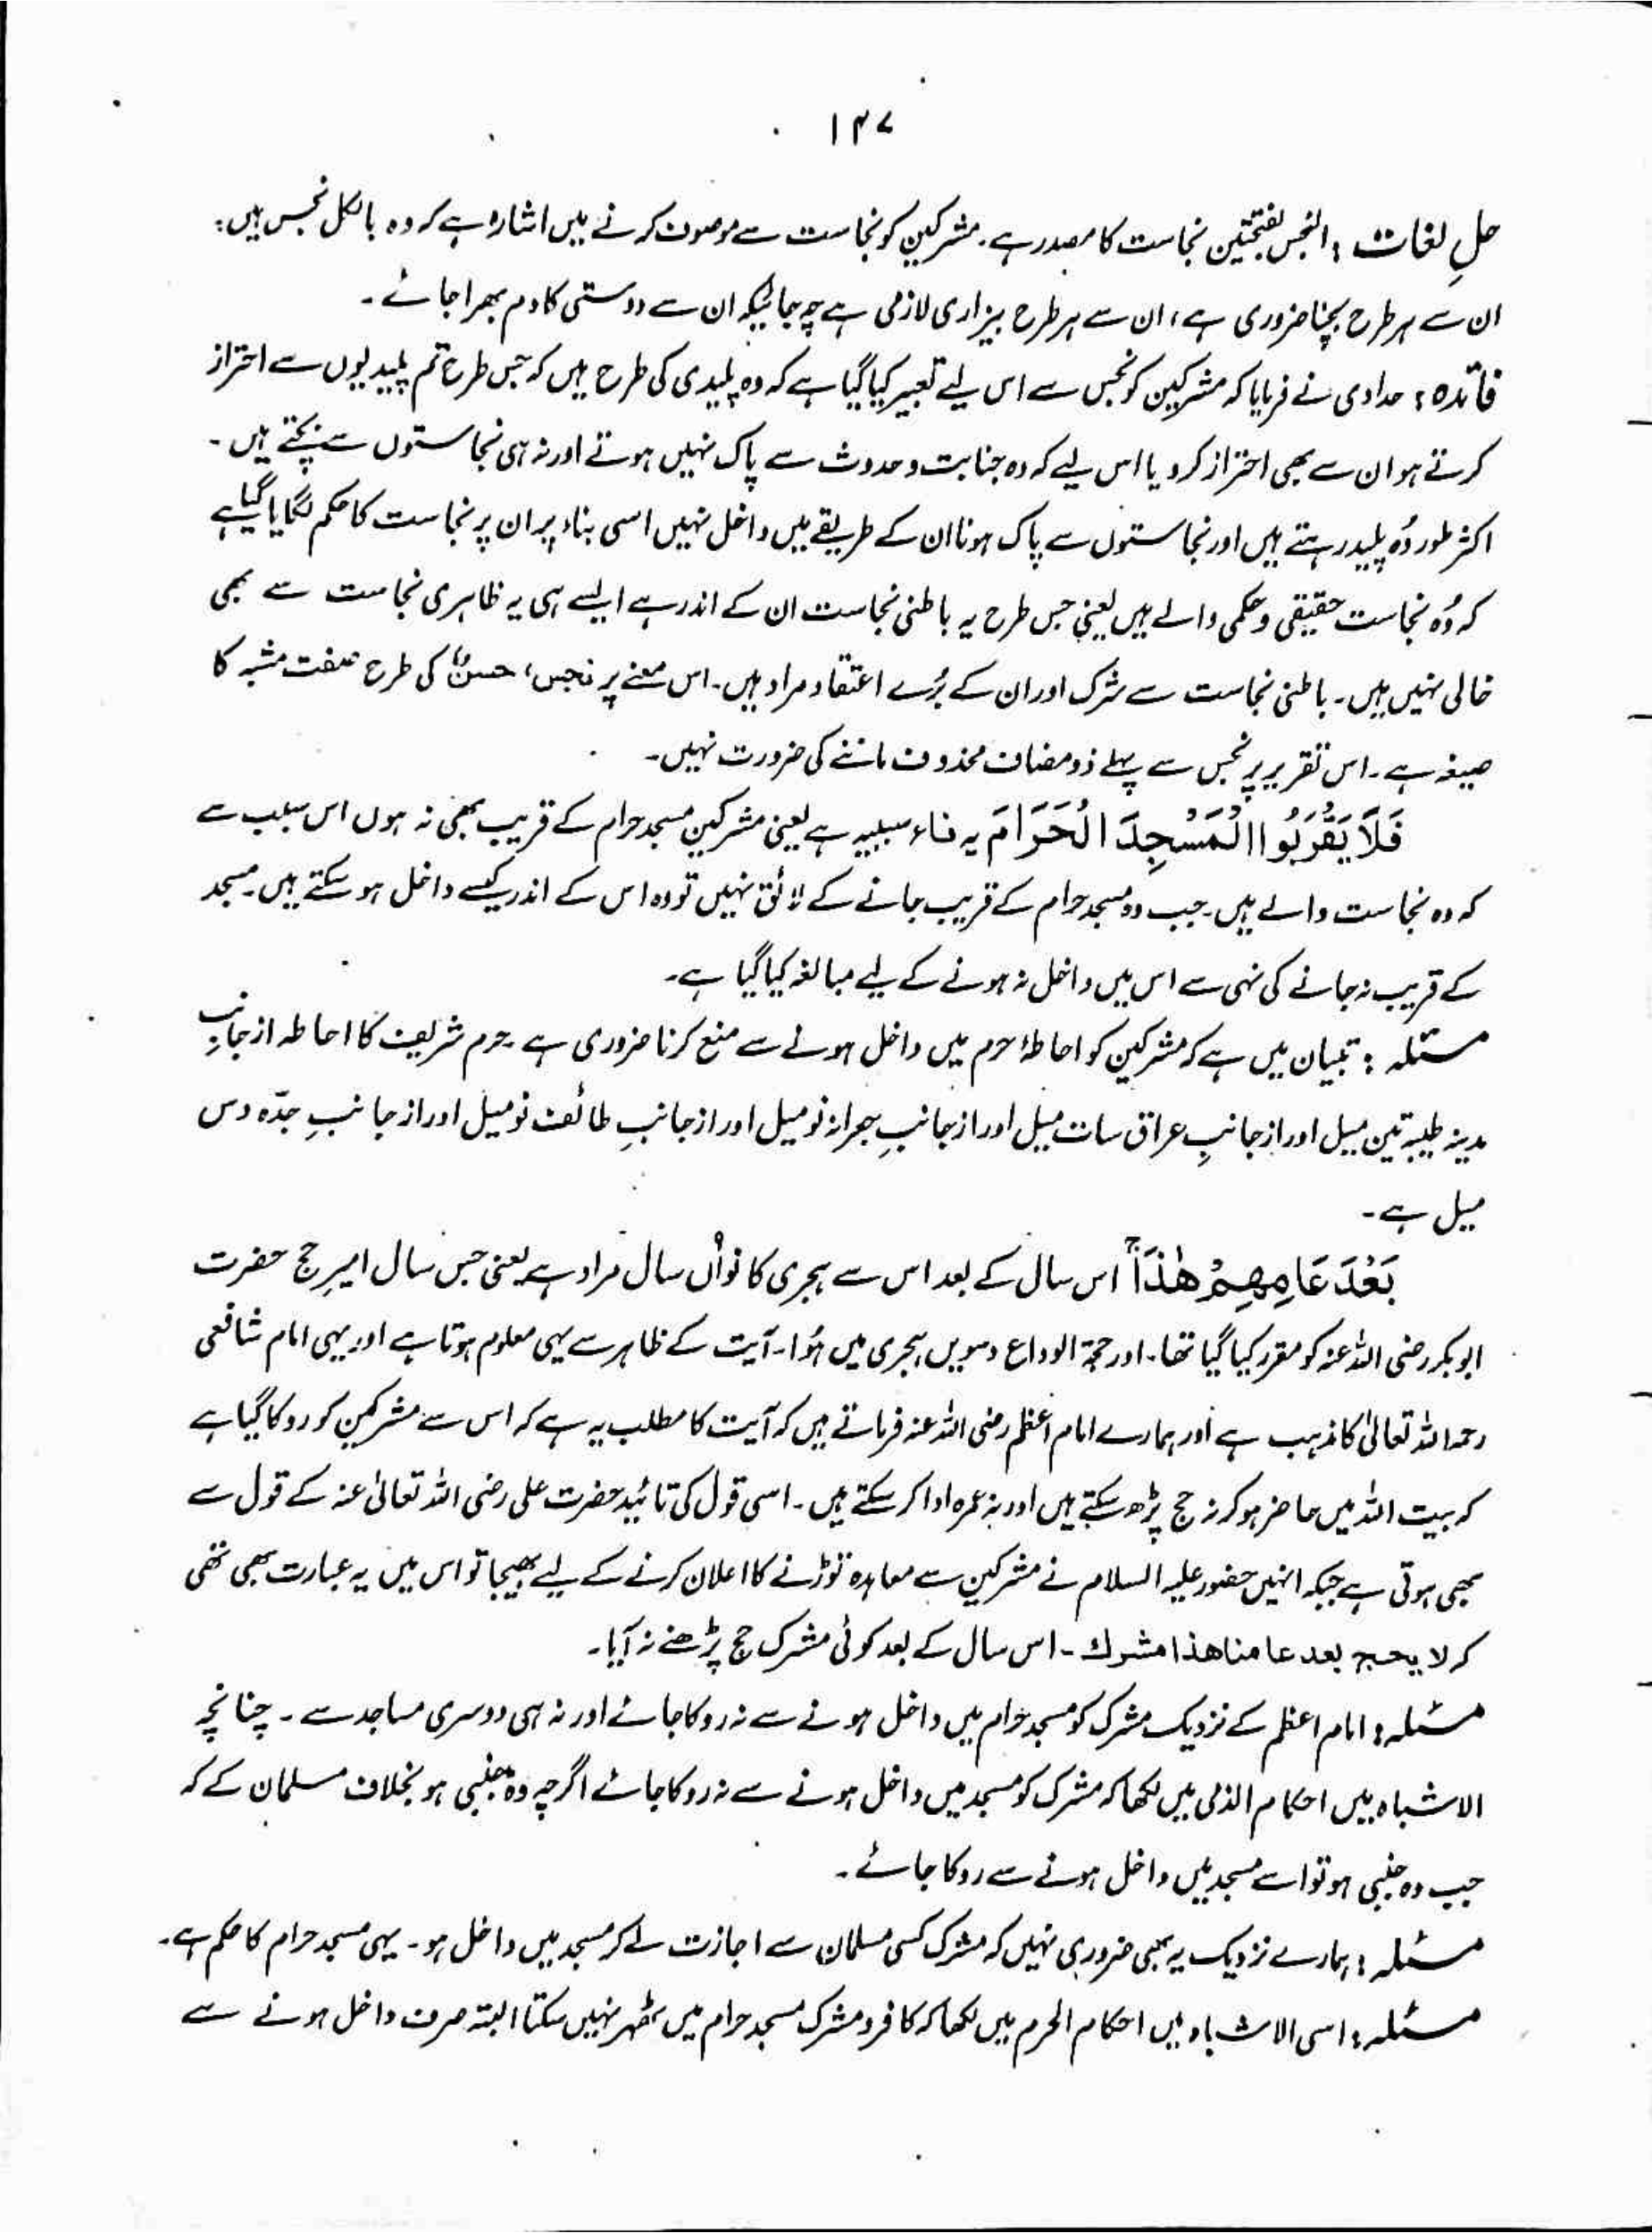 ۱۴۷
حلِ لغات : النجس بفتحتین نجاست کا مصدر ہے۔ مشرکین کو نجاست سے موصوف کرنے میں اشارہ ہے کہ وہ بالکل نجس ہیں:
ان سے ہر طرح بچنا ضروری ہے، ان سے ہر طرح بیزاری لازمی ہے چہ جائیکہ ان سے دوستی کا دم بھرا جائے۔
فائدہ : حدادی نے فرمایا کہ مشرکین کو نجس سے اس لیے تعبیر کیا گیا ہے کہ وہ پلیدی کی طرح ہیں کہ جس طرح تم پلیدیوں سے احتراز
کرتے ہو ان سے بھی احتراز کرو یا اس لیے کہ وہ جنابت و حدوث سے پاک نہیں ہوتے اور نہ ہی نجاستوں سے بچتے ہیں۔
اکثر طور وُہ پلید رہتے ہیں اور نجاستوں سے پاک ہونا ان کے طریقے میں داخل نہیں اسی بناء پر ان پر نجاست کا حکم لگایا گیا ہے
کہ وُہ نجاست حقیقی و حکمی والے ہیں یعنی جس طرح یہ باطنی نجاست ان کے اندر ہے ایسے ہی یہ ظاہری نجاست سے بھی
خالی نہیں ہیں۔ باطنی نجاست سے شرک اور ان کے بُرے اعتقاد مراد ہیں۔ اس معنے پر نجس، حسنٌ کی طرح صفت مشبہ کا
صیغہ ہے۔ اس تقریر پر نجس سے پہلے ذو مضاف محذوف ماننے کی ضرورت نہیں۔
فَلَا یَقْرَبُوا الْمَسْجِدَ الْحَرَامَ یہ فاء سببیہ ہے یعنی مشرکین مسجد حرام کے قریب بھی نہ ہوں اس سبب سے
کہ وہ نجاست والے ہیں۔ جب وہ مسجد حرام کے قریب جانے کے لائق نہیں تو وہ اس کے اندر کیسے داخل ہو سکتے ہیں۔ مسجد
کے قریب نہ جانے کی نہی سے اس میں داخل نہ ہونے کے لیے مبالغہ کیا گیا ہے۔
مسئلہ : تبیان میں ہے کہ مشرکین کو احاطۂ حرم میں داخل ہونے سے منع کرنا ضروری ہے۔ حرم شریف کا احاطہ از جانبِ
مدینہ طیبہ تین میل اور از جانبِ عراق سات میل اور از جانبِ جعرانہ نو میل اور از جانبِ طائف نو میل اور از جانبِ جدّہ دس
میل ہے۔
بَعْدَ عَامِهِمْ هٰذَا ۚ اس سال کے بعد اس سے ہجری کا نواں سال مراد ہے یعنی جس سال امیرِ حج حضرت
ابوبکر رضی اللہ عنہ کو مقرر کیا گیا تھا۔ اور حجۃ الوداع دسویں ہجری میں ہُوا۔ آیت کے ظاہر سے یہی معلوم ہوتا ہے اور یہی امام شافعی
رحمہ اللہ تعالیٰ کا مذہب ہے اور ہمارے امام اعظم رضی اللہ عنہ فرماتے ہیں کہ آیت کا مطلب یہ ہے کہ اس سے مشرکین کو روکا گیا ہے
کہ بیت اللہ میں حاضر ہو کر نہ حج پڑھ سکتے ہیں اور نہ عمرہ ادا کر سکتے ہیں۔ اسی قول کی تائید حضرت علی رضی اللہ تعالیٰ عنہ کے قول سے
بھی ہوتی ہے جبکہ انہیں حضور علیہ السلام نے مشرکین سے معاہدہ توڑنے کا اعلان کرنے کے لیے بھیجا تو اس میں یہ عبارت بھی تھی
کہ لا یحج بعد عامنا هذا مشرك ۔ اس سال کے بعد کوئی مشرک حج پڑھنے نہ آیا۔
مسئلہ : امام اعظم کے نزدیک مشرک کو مسجد حرام میں داخل ہونے سے نہ روکا جائے اور نہ ہی دوسری مساجد سے ۔ چنانچہ
الاشباہ میں احکام الذمی میں لکھا کہ مشرک کو مسجد میں داخل ہونے سے نہ روکا جائے اگرچہ وہ جنبی ہو بخلاف مسلمان کے کہ
جب وہ جنبی ہو تو اسے مسجد میں داخل ہونے سے روکا جائے۔
مسئلہ : ہمارے نزدیک یہ بھی ضروری نہیں کہ مشرک کسی مسلمان سے اجازت لے کر مسجد میں داخل ہو۔ یہی مسجد حرام کا حکم ہے۔
مسئلہ : اسی الاشباہ میں احکام الحرم میں لکھا کہ کافر و مشرک مسجد حرام میں ٹھہر نہیں سکتا البتہ صرف داخل ہونے سے